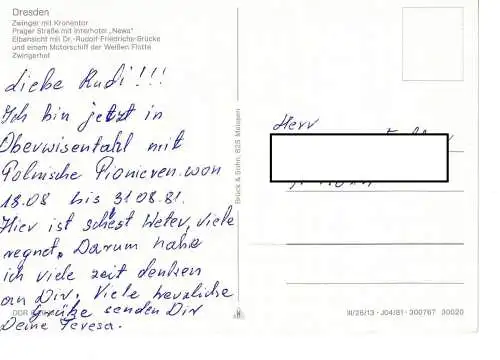 Dresden
Zwinger mit Kronentor
Prager Straße mit Interhotel „Newa"
Elbansicht mit Dr.-Rudolf-Friedrichs-Brücke
und einem Motorschiff der Weißen Flotte
Zwingerhof
Liebe Rudi!!!
Ich bin jetzt in
Oberwisentahl mit
Polnische Pionieren won
18.08 bis 31.08.81.
Hier ist schlest Weter, viele
regnet. Darum habe
ich viele zeit denken
an Dir. Viele herzliche
Grüße senden Dir
Deine Teresa.
DDR
Brück & Sohn, 825 Meissen
Herr
III/26/13 - J04/81 - 300767 30020